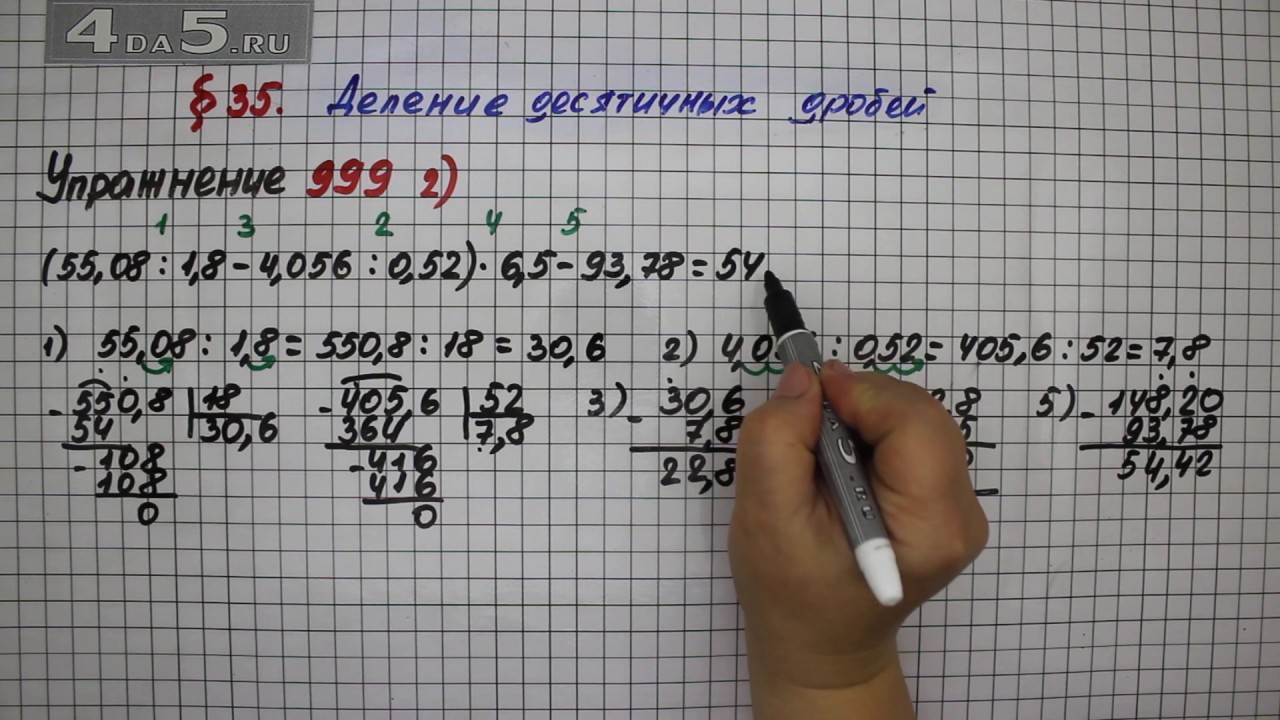 4DA5.RU
§ 35. Деление десятичных дробей
Упражнение 999 2)
1 3 2 4 5
(55,08 : 1,8 - 4,056 : 0,52) · 6,5 - 93,78 = 54
1) 55,08 : 1,8 = 550,8 : 18 = 30,6
2) : 0,52 = 405,6 : 52 = 7,8
- 550,8 | 18
54 30,6
- 108
108
0
- 405,6 | 52
364 7,8
- 416
416
0
3) - 30,6
7,8
22,8
5) - 148,20
93,78
54,42